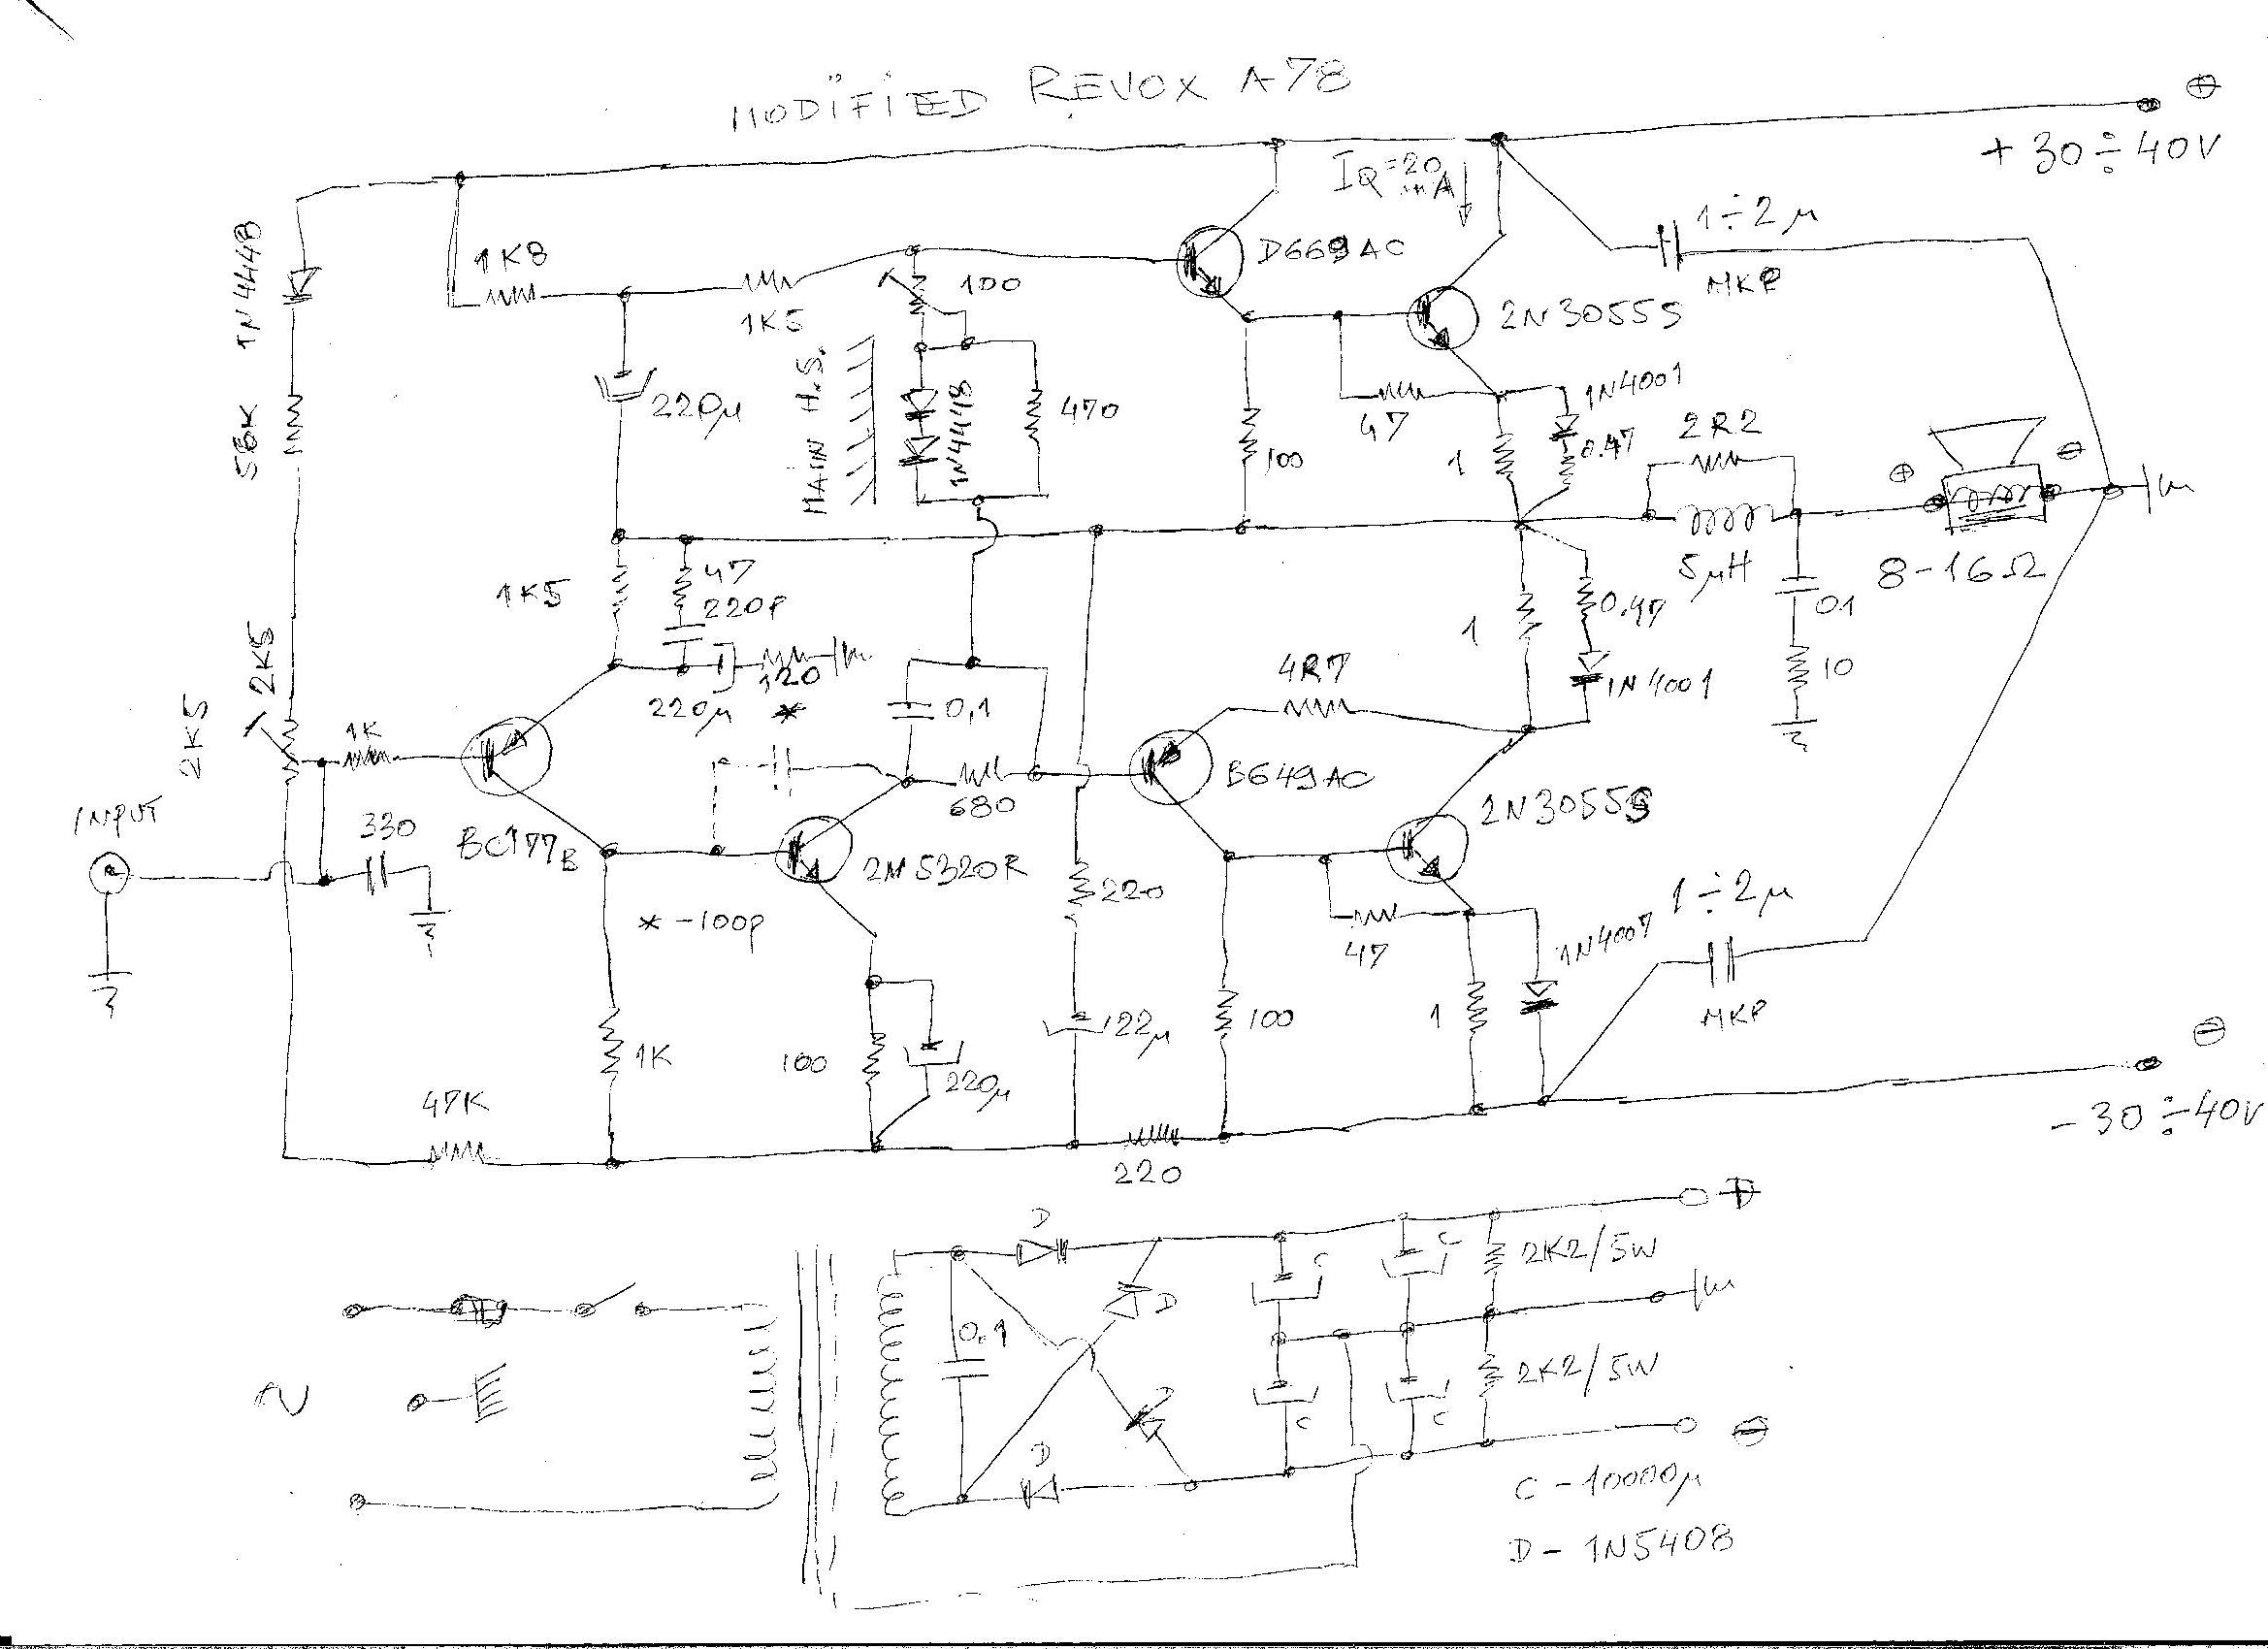 MODIFIED REVOX A78
⊕
+30÷40V
IQ=20
mA
1÷2µ
MKP
1N4448
56K
1K8
1K5
220µ
100
MAIN H.S.
1N4448
470
D669AC
2N3055S
47
1N4001
0.47
1
100
2R2
5µH
⊕
⊖
8-16Ω
0.1
10
1K5
47
220p
220µ
120
*
2K5
2K5
1K
INPUT
330
BC177B
0,1
680
2N5320R
* -100p
4R7
B649AC
1
0.47
1N4001
2N3055S
47
1N4007
1÷2µ
MKP
220
22µ
100
1
1K
100
220µ
47K
220
⊖
-30÷40V
D
D
D
D
0.1
C
C
C
C
2K2/5W
2K2/5W
+
⊖
~
C - 10000µ
D - 1N5408